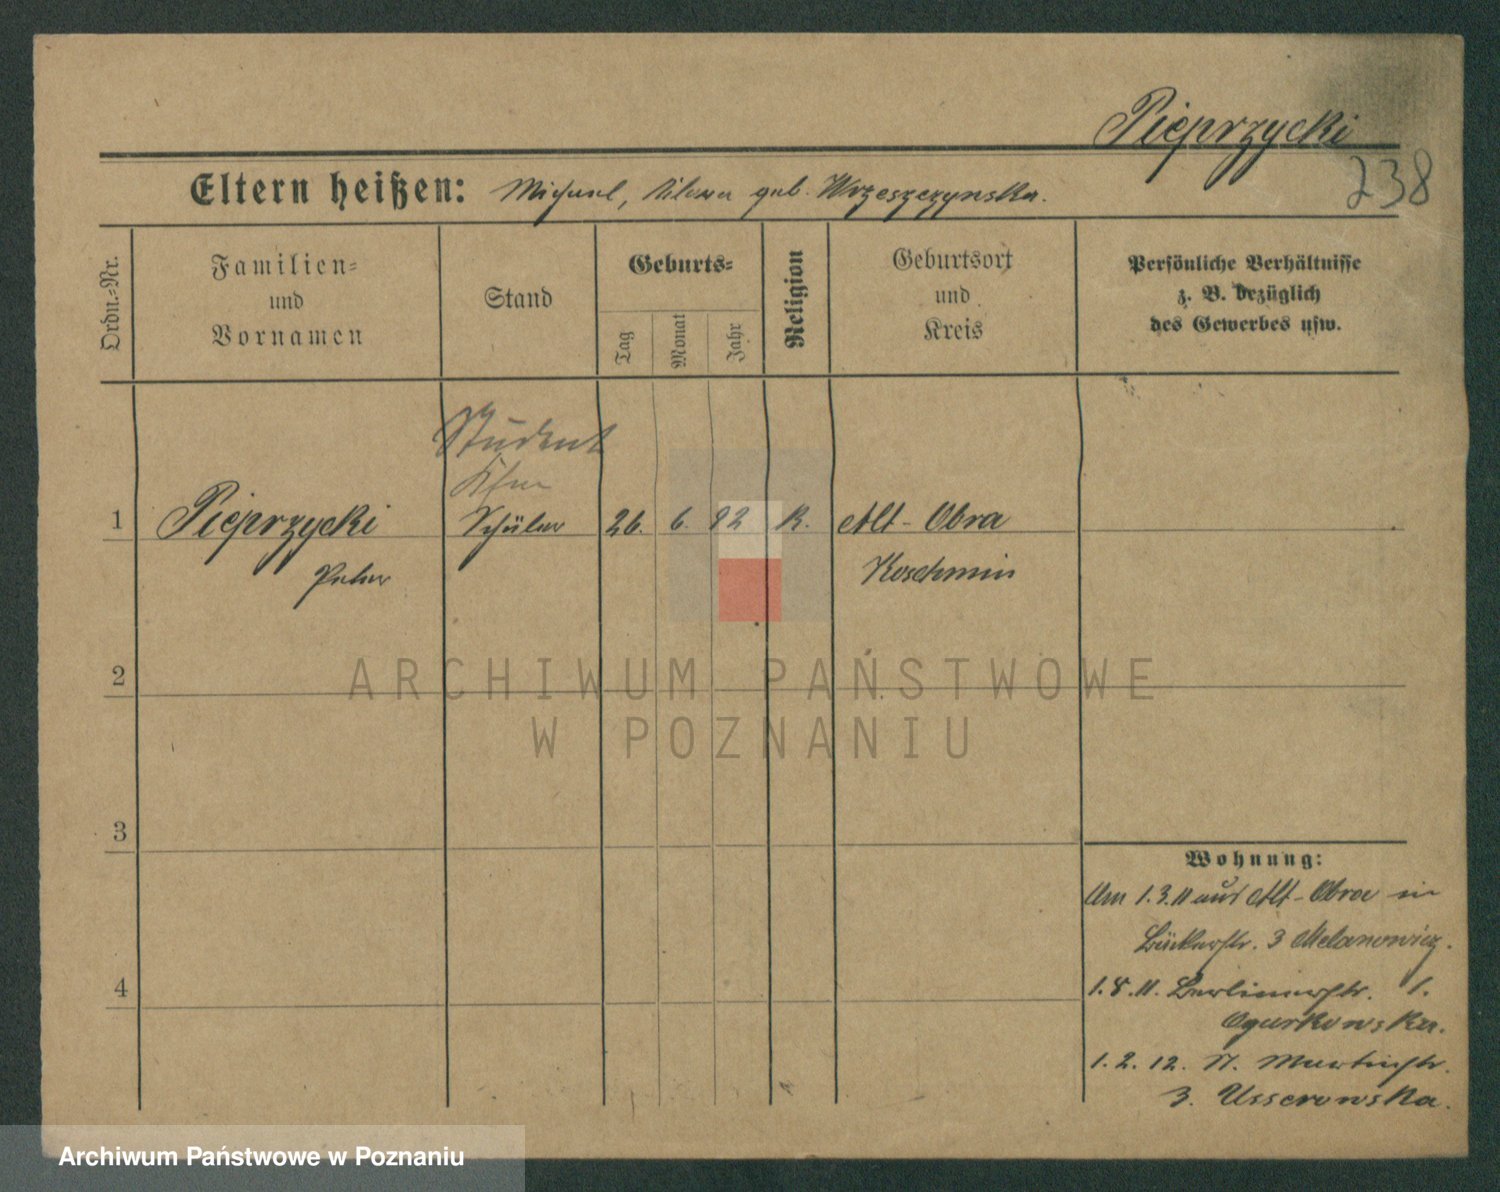 Pieprzycki
238
Eltern heißen: Michael, geb. Wrzeszczynska.
Ordn.-Nr.
Familien-
und
Vornamen
Stand
Geburts-
Tag
Monat
Jahr
Religion
Geburtsort
und
Kreis
Persönliche Verhältnisse
z. B. bezüglich
des Gewerbes usw.
Student
1 Pieprzycki Schüler 26. 6. 92 K. Alt-Obra
Peter Koschmin
2
3
4
Wohnung:
Am 1.3.11 aus Alt-Obra in
Bäckerstr. 3 Melanowicz.
1.8.11. Berlinerstr. 1.
Ogurkowska.
1.2.12. St. Martinstr.
3. Usserowska.
ARCHIWUM PAŃSTWOWE
W POZNANIU
Archiwum Państwowe w Poznaniu